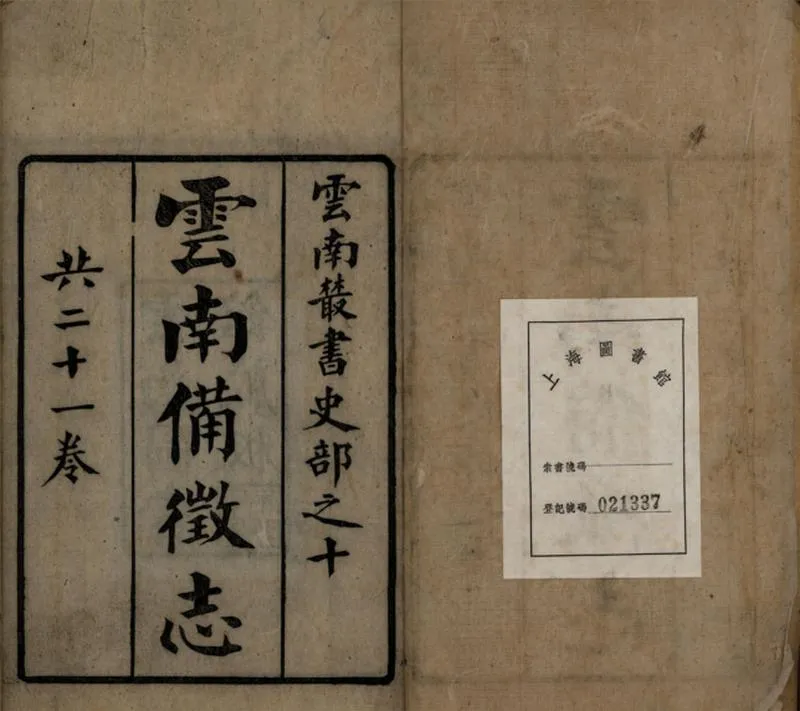 雲南叢書史部之十
雲南備徵志
共二十一卷
上海圖書館
索書號碼
登記號碼 021337